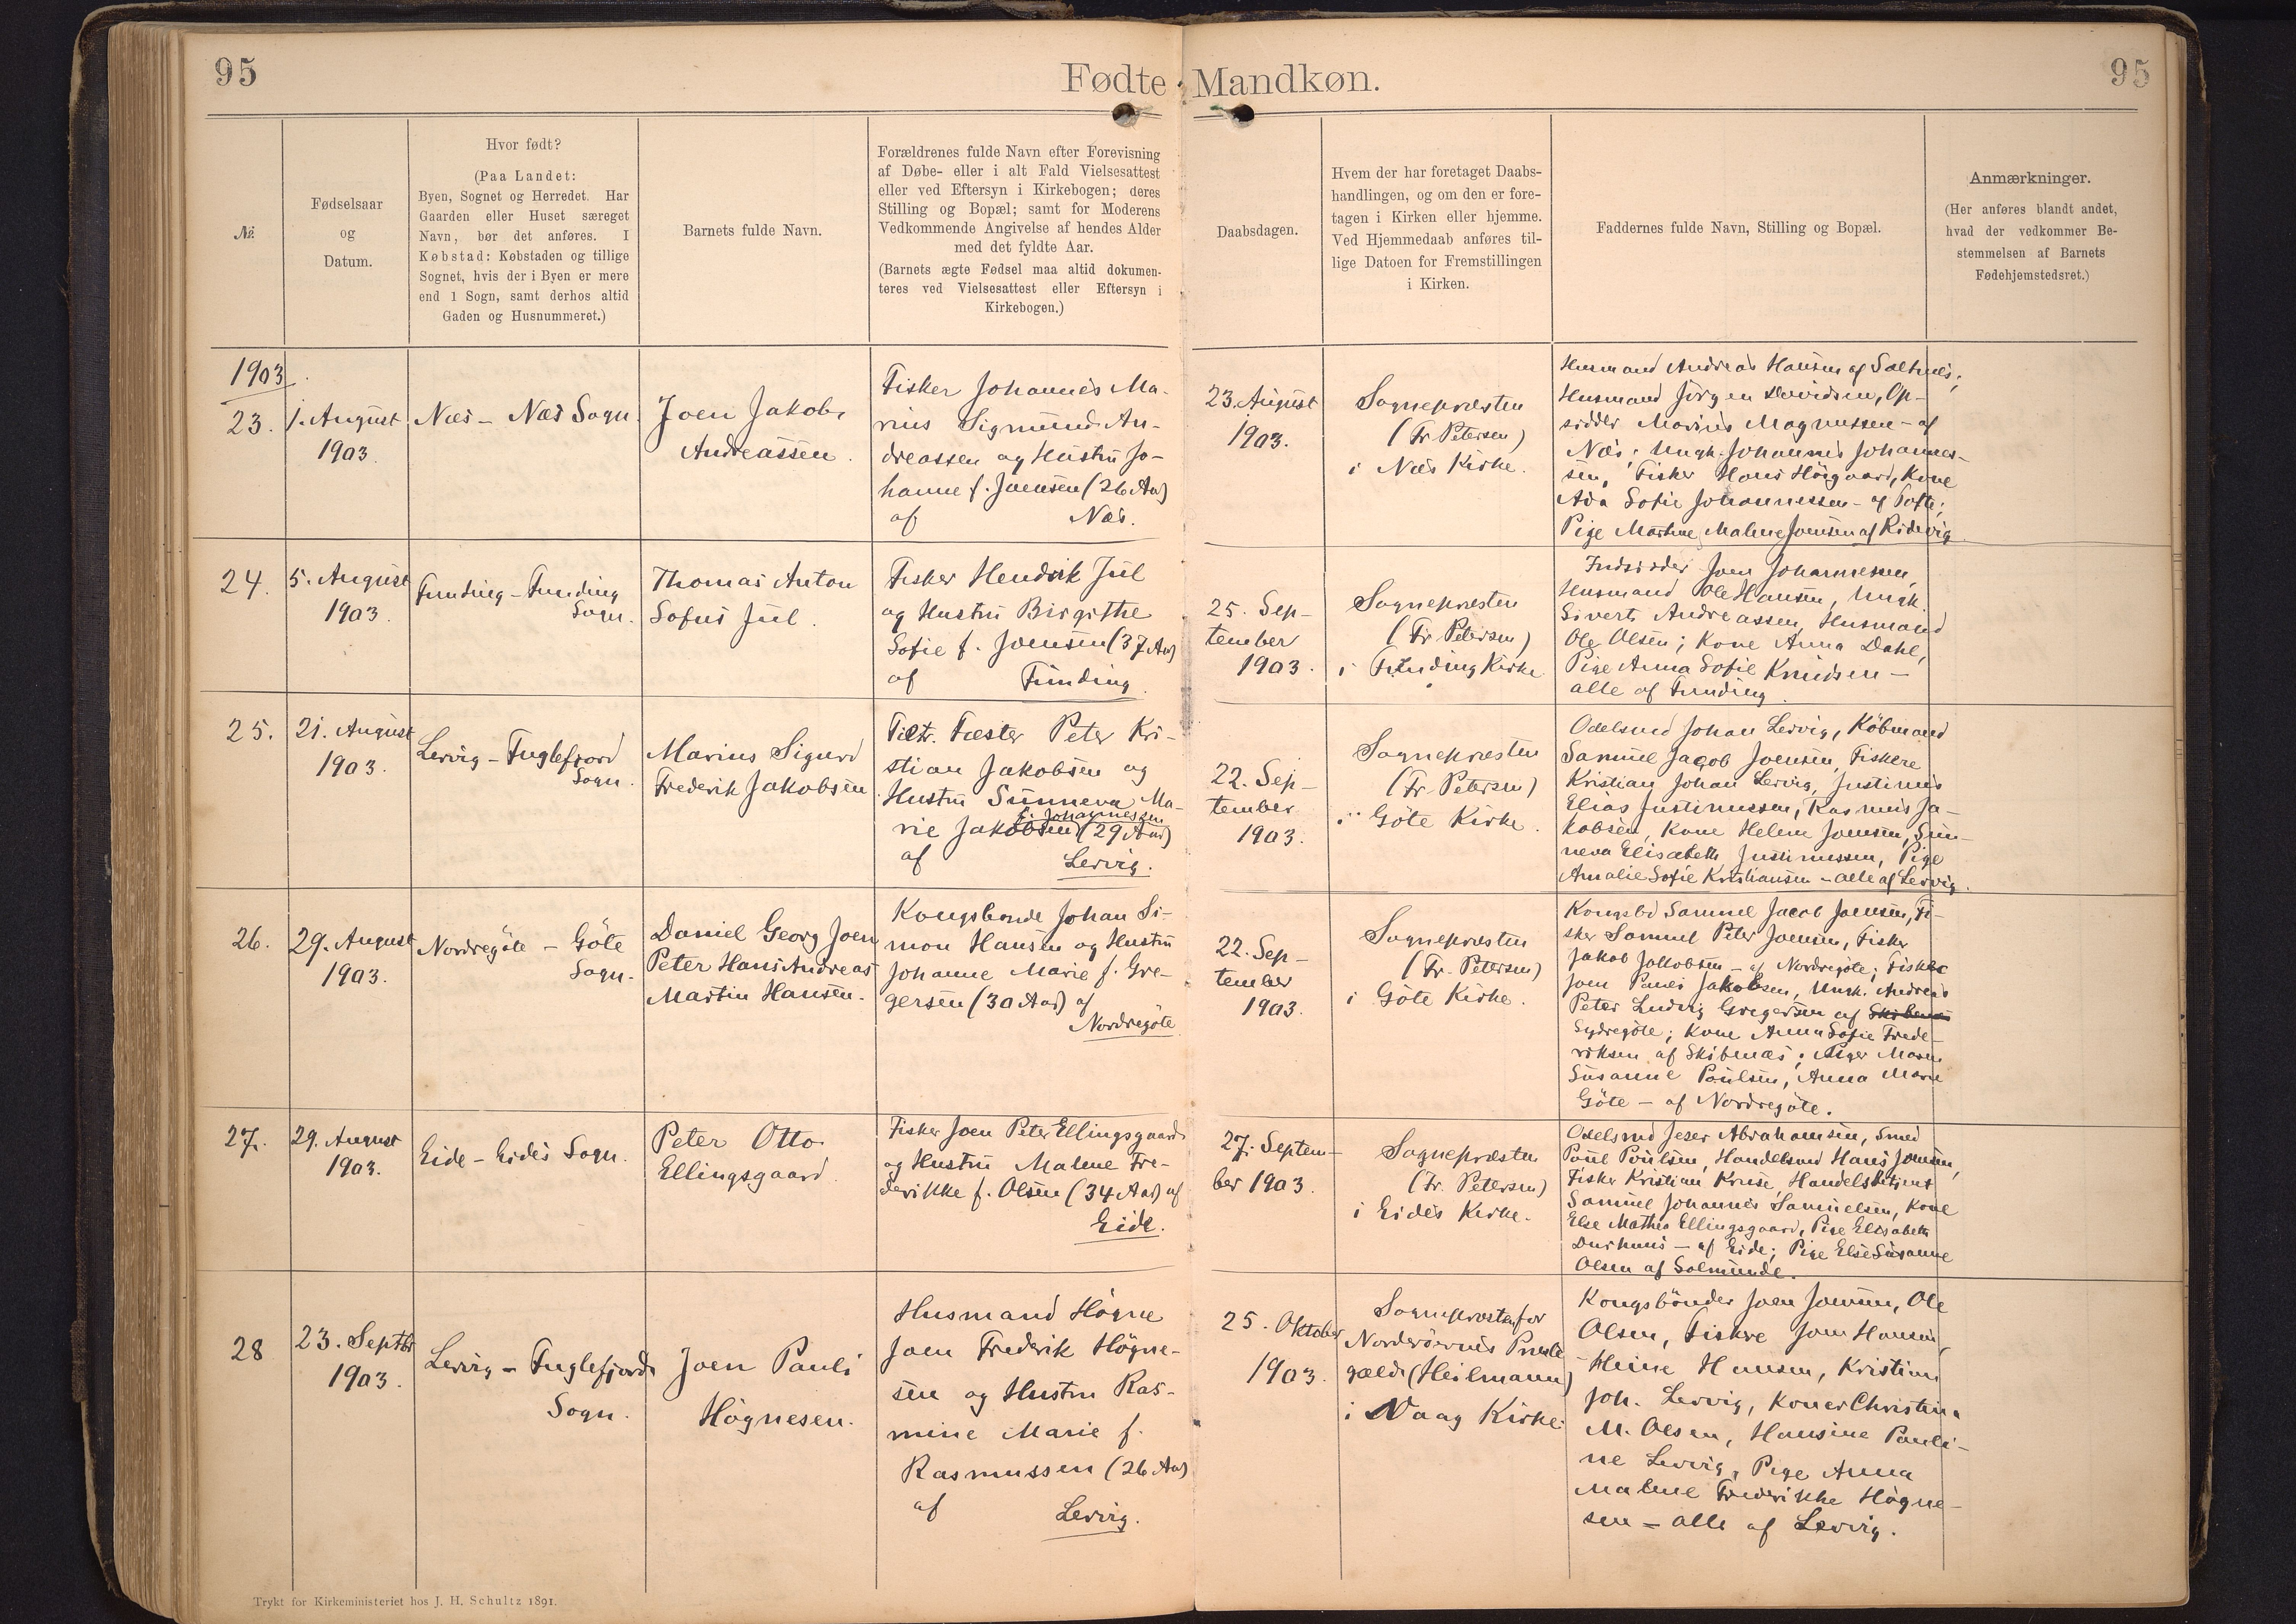 95
Fødte Mandkøn.
95
№.
Fødselsaar
og
Datum.
Hvor født?
(Paa Landet:
Byen, Sognet og Herredet. Har
Gaarden eller Huset særeget
Navn, bør det anføres. I
Købstad: Købstaden og tillige
Sognet, hvis der i Byen er mere
end 1 Sogn, samt derhos altid
Gaden og Husnummeret.)
Barnets fulde Navn.
Forældrenes fulde Navn efter Forevisning
af Døbe- eller i alt Fald Vielsesattest
eller ved Eftersyn i Kirkebogen; deres
Stilling og Bopæl; samt for Moderens
Vedkommende Angivelse af hendes Alder
med det fyldte Aar.
(Barnets ægte Fødsel maa altid dokumen-
teres ved Vielsesattest eller Eftersyn i
Kirkebogen.)
Daabsdagen.
Hvem der har foretaget Daabs-
handlingen, og om den er fore-
tagen i Kirken eller hjemme.
Ved Hjemmedaab anføres til-
lige Datoen for Fremstillingen
i Kirken.
Faddernes fulde Navn, Stilling og Bopæl.
Anmærkninger.
(Her anføres blandt andet,
hvad der vedkommer Be-
stemmelsen af Barnets
Fødehjemstedsret.)
1903
23.
1. August
1903.
Næs - Næs Sogn
Joen Jakob
Andreassen.
Fisker Johannes Ma-
rius Sigmund An-
dreassen og Hustru Jo-
hanne f. Joensen (26 Aar)
af Næs.
23. August
1903.
Sognepræsten
(Fr. Petersen)
i Næs Kirke.
Husmand Andreas Hansen af Saltnæs;
Husmand Jörgen Davidsen, Op-
sidder Marius Magnussen - af
Næs; Ungk. Johannes Johannes-
sen, Fisker Hans Höigaard, Kone
Ada Sofie Johannessen - af Tofte;
Pige Martine Malene Joensen af Ridevig
24.
5. August
1903.
Funding - Funding
Sogn.
Thomas Anton
Sofus Juul.
Fisker Hendrik Juul
og Hustru Birgithe
Sofie f. Joensen (37 Aar)
af Funding.
25. Sep-
tember
1903.
Sognepræsten
(Fr. Petersen)
i Funding Kirke
Indsidder Joen Johannessen,
Husmand Ole Hansen, Ungk.
Sivert Andreassen, Husmand
Ole Olsen; Kone Anna Dahl,
Pige Anna Sofie Knudsen -
alle af Funding
25.
21. August
1903.
Lervig - Fuglefjord
Sogn.
Marius Sigurd
Frederik Jakobsen
Fæster Peter Kri-
stian Jakobsen og
Hustru Sunneva Ma-
f. Johannessen
rie Jakobsen (29 Aar)
af Lervig.
22. Sep-
tember
1903.
Sognepræsten
(Fr. Petersen)
i Göte Kirke.
Odelsmd Johan Lervig, Köbmand
Samuel Jacob Joensen, Fiskere
Kristian Johan Lervig, Justinus
Elias Justinussen, Rasmus Ja-
kobsen, Kone Helene Joensen, Sun-
neva Elisabeth Justinussen, Pige
Amalie Sofie Kristiansen - alle af Lervig.
26.
29. August
1903.
Nordregöte - Göte
Sogn.
Daniel Georg Joen
Peter Hans Andreas
Martin Hansen.
Kongsbonde Johan Si-
mon Hansen og Hustru
Johanne Marie f. Gre-
gersen (30 Aar) af
Nordregöte
22. Sep-
tember
1903.
Sognepræsten
(Fr. Petersen)
i Göte Kirke.
Kongsbd Samuel Jacob Joensen, Fi-
sker Samuel Peter Joensen, Fisker
Jakob Jakobsen - af Nordregöte; Fisker
Joen Pauli Jakobsen, Ungk. Andreas
Peter Ludvig Gregersen af
Sydregöte; Kone Anna Sofie Frede-
riksen af Skibenæs; Piger Maren
Susanne Poulsen, Anna Marie
Göte - af Nordregöte.
27.
29. August
1903.
Eide - Eides Sogn.
Peter Otto
Ellingsgaard
Fisker Joen Peter Ellingsgaard
og Hustru Malene Fre-
derikke f. Olsen (34 Aar) af
Eide.
27. Septem-
ber 1903.
Sognepræsten
(Fr. Petersen)
i Eides Kirke.
Odelsmd Jeser Abrahamsen, Smed
Poul Poulsen, Handelsmd Hans Joensen,
Fisker Kristian Kruse, Handelsbetjent
Samuel Johannes Samuelsen, Kone
Else Mathea Ellingsgaard, Pige Elisabeth
Durhuus - af Eide; Pige Else Susanne
Olsen af Solmunde.
28
23. Septbr
1903.
Lervig - Fuglefjords
Sogn.
Joen Pauli
Högnesen.
Husmand Högne
Joen Frederik Högne-
sen og Hustru Ras-
mine Marie f.
Rasmussen (26 Aar)
af Lervig.
25. Oktober
1903.
Sognepræsten for
Norderöernes Præste-
gæld (Heilmann)
i Vaag Kirke.
Kongsbönder Joen Joensen, Ole
Olsen, Fiskere Joen Hansen,
Heine Hansen, Kristian
Joh. Lervig, Koner Christina
M. Olsen, Hansine Pauli-
ne Lervig, Pige Anna
Malene Frederikke Högne-
sen - alle af Lervig.
Trykt for Kirkeministeriet hos J. H. Schultz 1891.